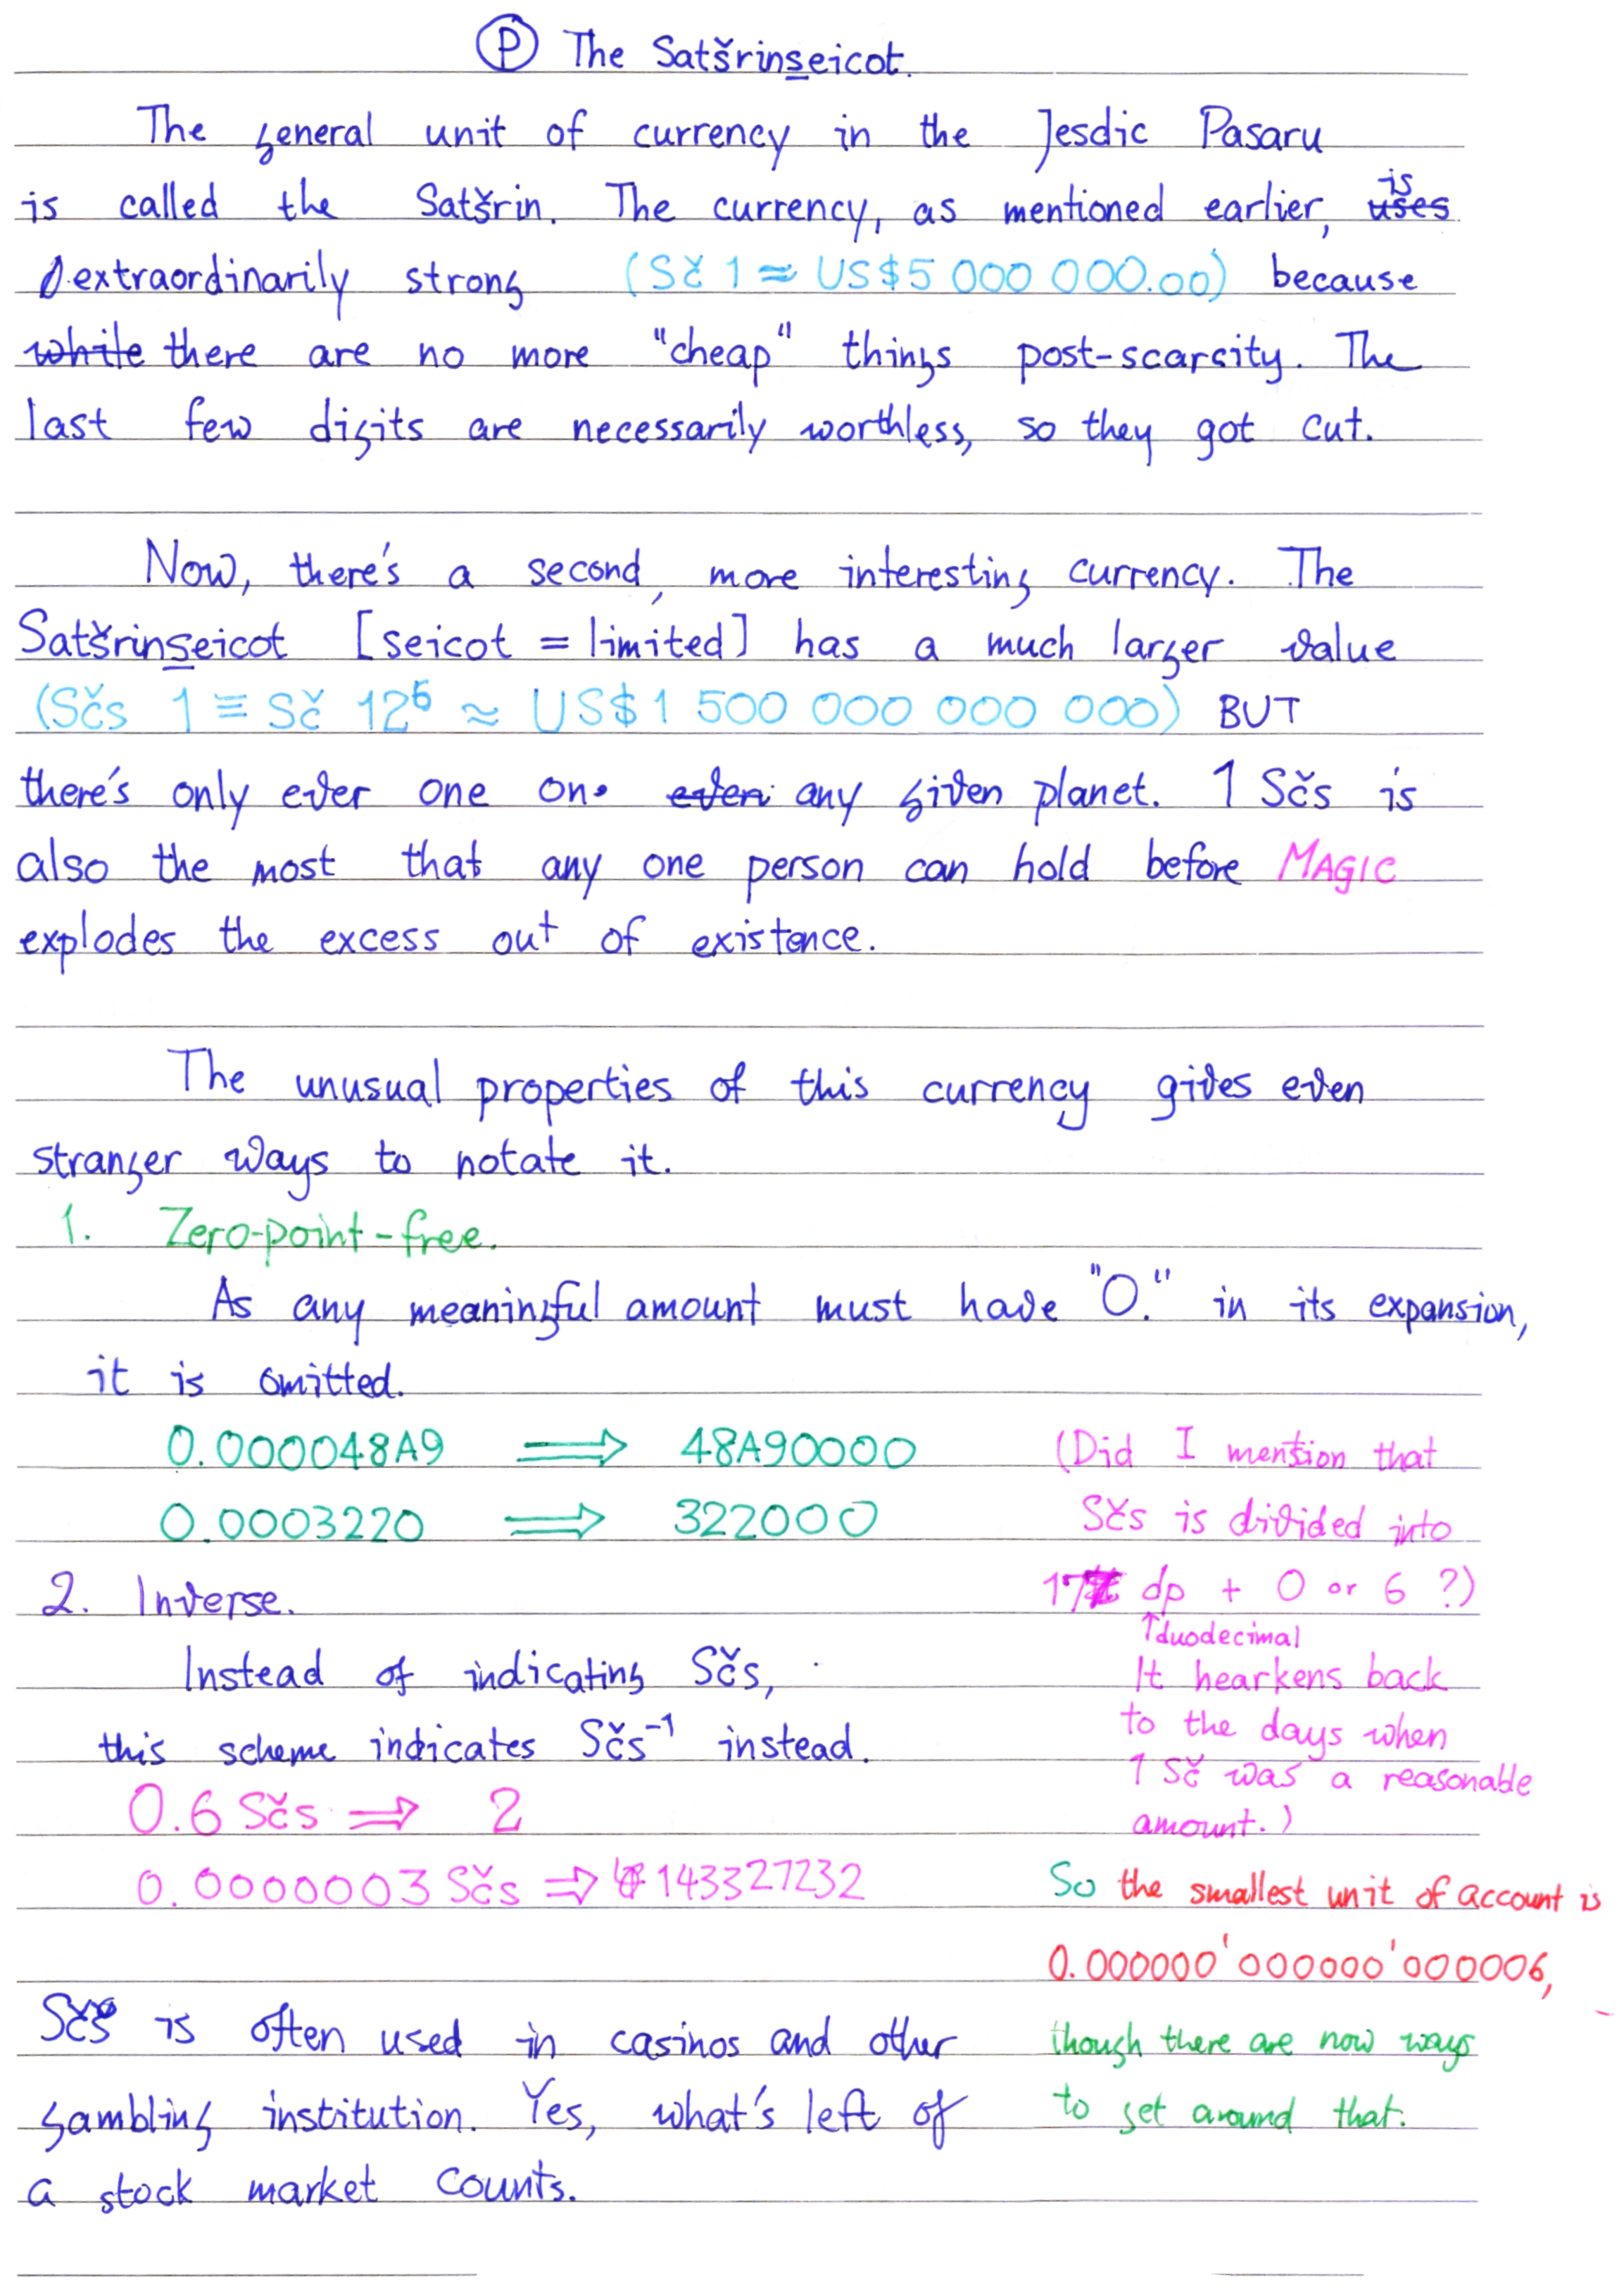 Ⓟ The Satšrinseicot.
The general unit of currency in the Jesdic Pasaru
is called the Satšrin. The currency, as mentioned earlier, uses is
extraordinarily strong (Sč 1 ≈ US$5 000 000.00) because
while there are no more "cheap" things post-scarcity. The
last few digits are necessarily worthless, so they got cut.
Now, there's a second, more interesting currency. The
Satšrinseicot [seicot = limited] has a much larger value
(Sčs 1 ≡ Sč 12⁵ ≈ US$1 500 000 000 000) BUT
there's only ever one on even any given planet. 1 Sčs is
also the most that any one person can hold before MAGIC
explodes the excess out of existence.
The unusual properties of this currency gives even
stranger ways to notate it.
1. Zero-point-free.
As any meaningful amount must have "0." in its expansion,
it is omitted.
0.000048A9 ⟹ 48A90000
0.0003220 ⟹ 322000
(Did I mention that
Sčs is divided into
17 dp + 0 or 6 ?)
↑duodecimal
It hearkens back
to the days when
1 Sč was a reasonable
amount.)
2. Inverse.
Instead of indicating Sčs,
this scheme indicates Sčs⁻¹ instead.
0.6 Sčs ⇒ 2
0.0000003 Sčs ⇒ 143327232
So the smallest unit of account is
0.000000'000000'000006,
though there are now ways
to get around that.
Sčs is often used in casinos and other
gambling institution. Yes, what's left of
a stock market counts.